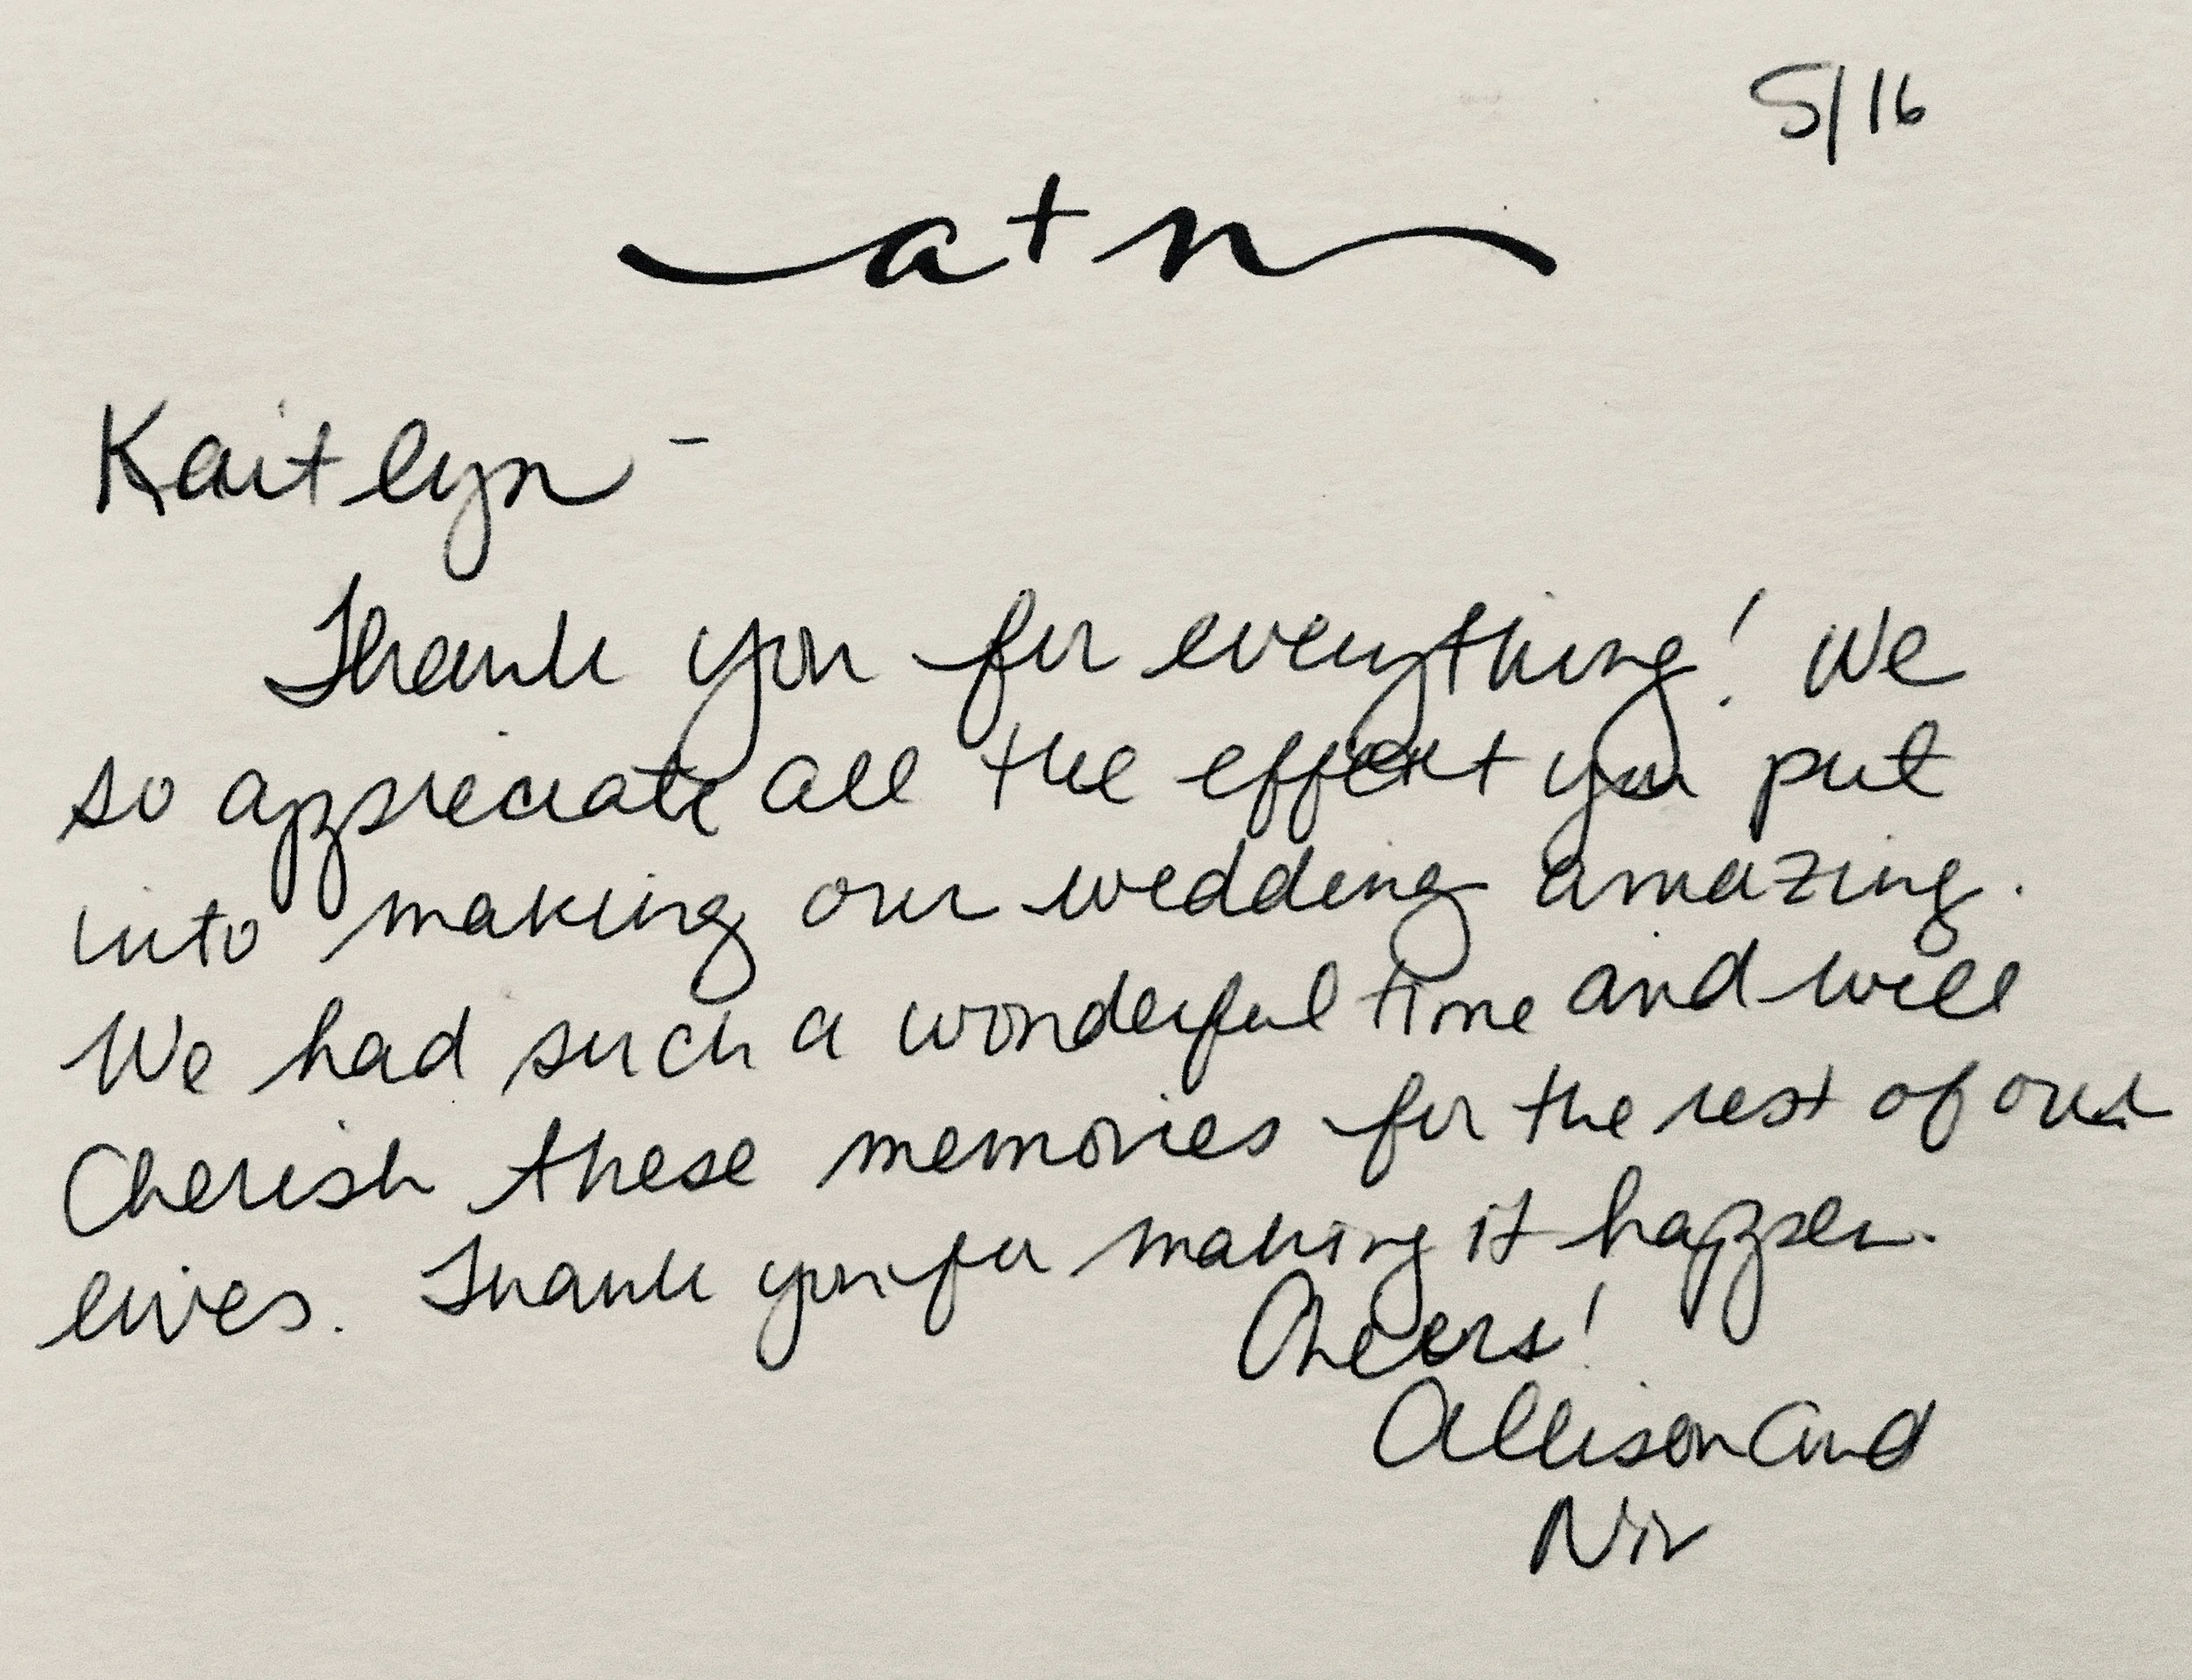 5/16
a+n
Kaitlyn -
Thank you for everything! We
so appreciate all the effort you put
into making our wedding amazing.
We had such a wonderful time and will
Cherish these memories for the rest of our
lives. Thank you for making it happen.
Cheers!
Allison and
Nir